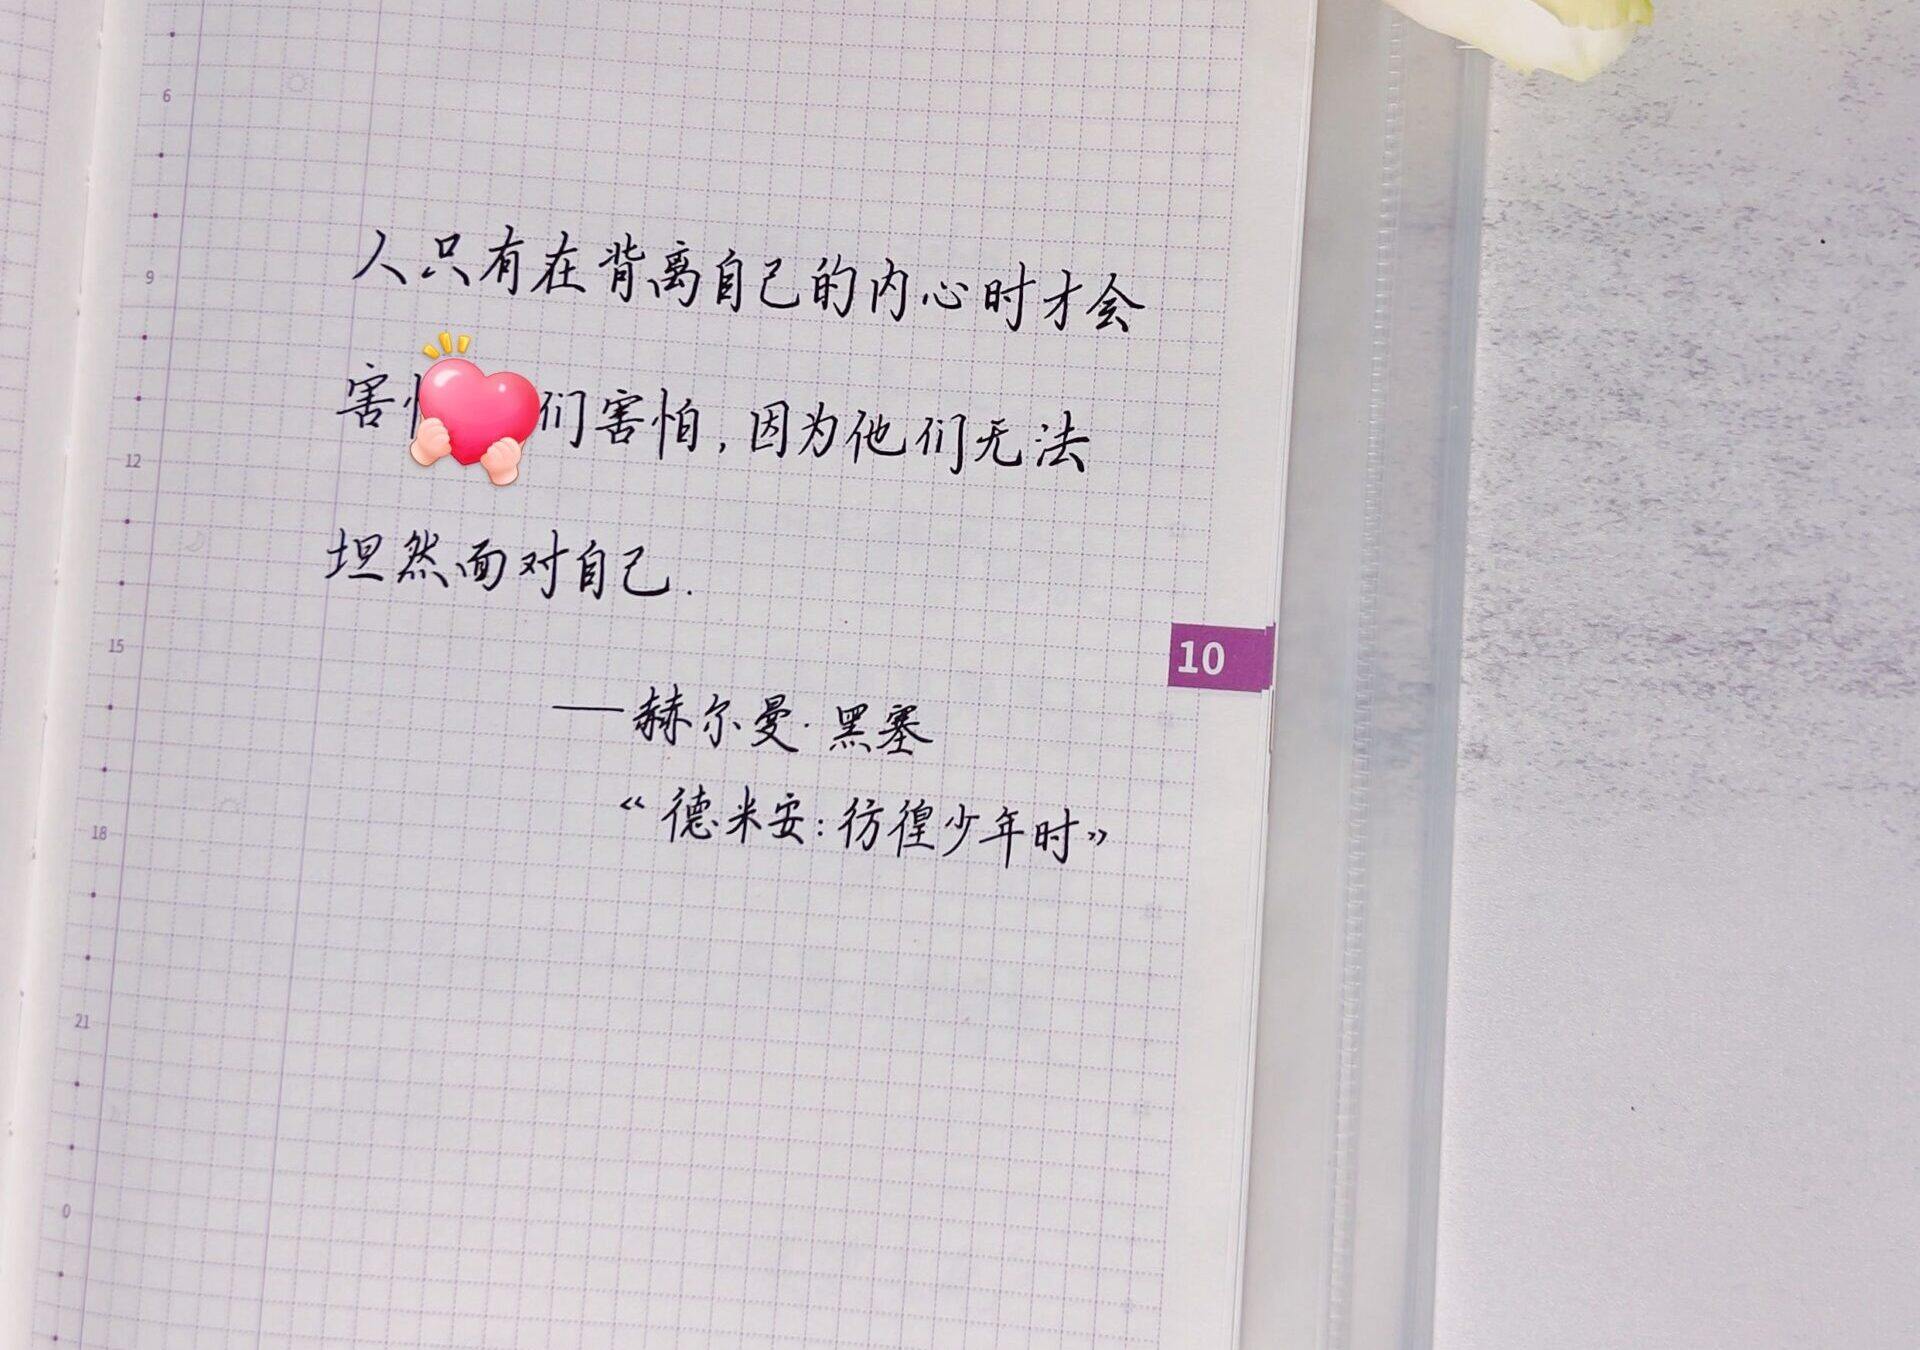 6
人只有在背离自己的内心时才会
9
害 们害怕,因为他们无法
12
坦然面对自己.
15
10
——赫尔曼·黑塞
《德米安:彷徨少年时》
18
21
0